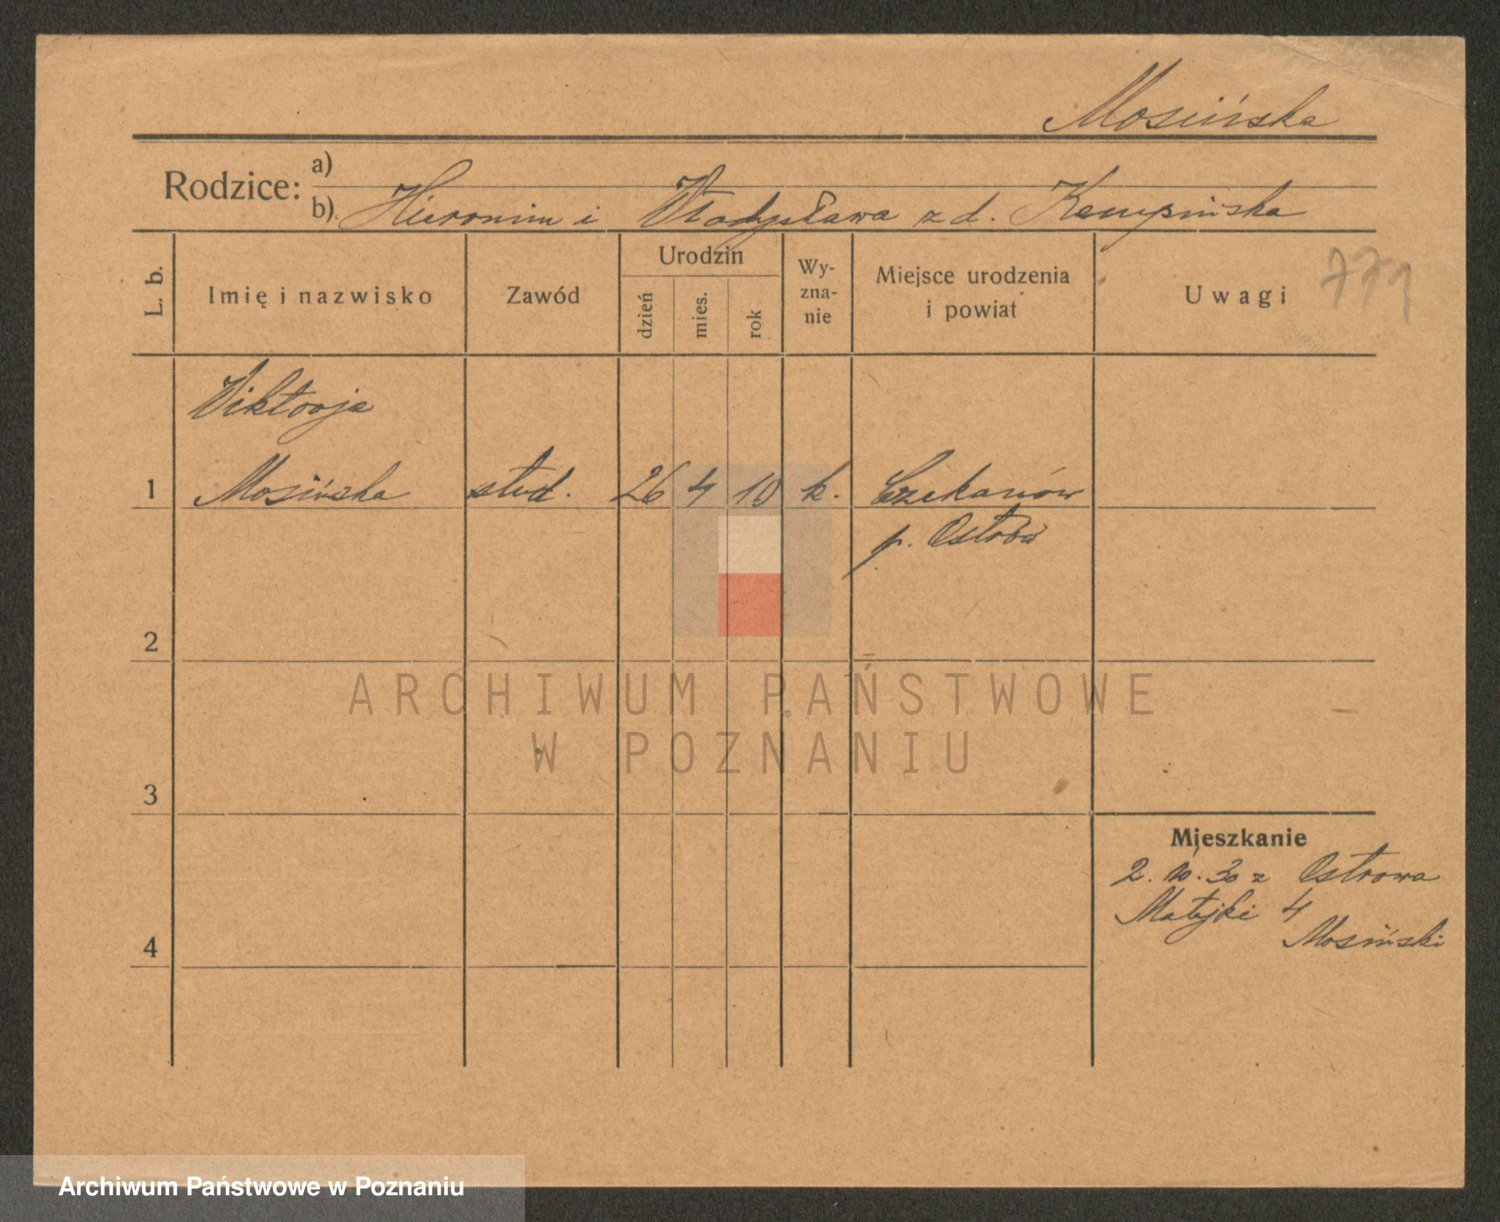 Mosińska
Rodzice: a)
b) Hieronim i Władysława z d. Kempińska
L. b.
Imię i nazwisko
Zawód
Urodzin
dzień
mies.
rok
Wy-
zna-
nie
Miejsce urodzenia
i powiat
Uwagi
771
Wiktorja
1 Mosińska stud. 26 4 10 k. Czekanów
p. Ostrów
2
ARCHIWUM PAŃSTWOWE
W POZNANIU
3
Mieszkanie
2. 10. 30 z Ostrowa
Matejki 4
Mosiński
4
Archiwum Państwowe w Poznaniu